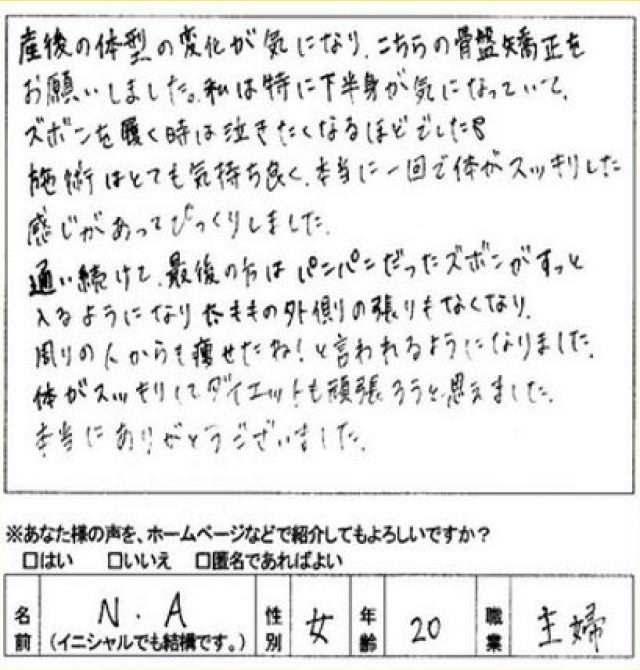 産後の体型の変化が気になり、こちらの骨盤矯正を
お願いしました。私は特に下半身が気になっていて、
ズボンを履く時は泣きたくなるほどでした
施術はとても気持ち良く、本当に一回で体がスッキリした
感じがあってびっくりしました。
通い続けて、最後の方はパンパンだったズボンがすっと
入るようになり太ももの外側の張りもなくなり、
周りの人からも痩せたね!と言われるようになりました。
体がスッキリしてダイエットも頑張ろうと思えました。
本当にありがとうございました。
※あなた様の声を、ホームページなどで紹介してもよろしいですか?
□はい □いいえ □匿名であればよい
名前 N.A (イニシャルでも結構です。) 性別 女 年齢 20 職業 主婦